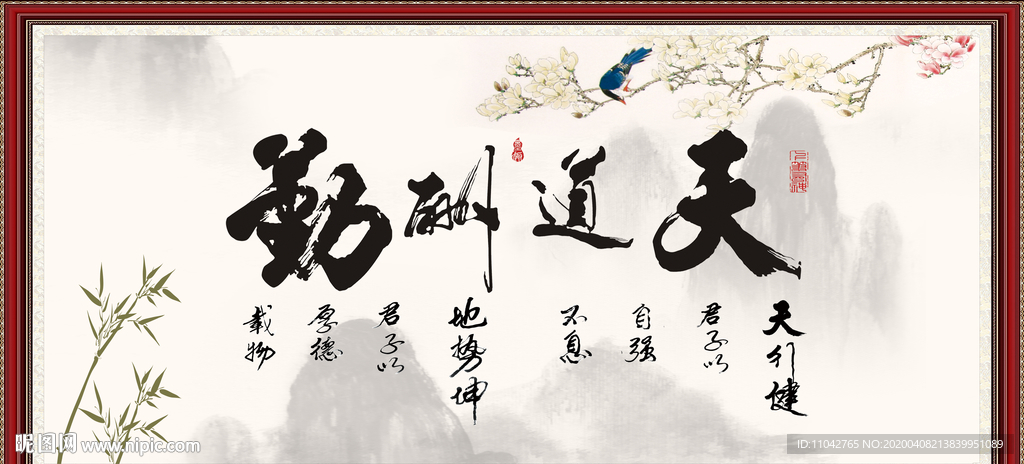 天道酬勤
天行健
君子以
自强
不息
地势坤
君子以
厚德
载物
昵图网 www.nipic.com
ID:11042765 NO:20200408213839951089